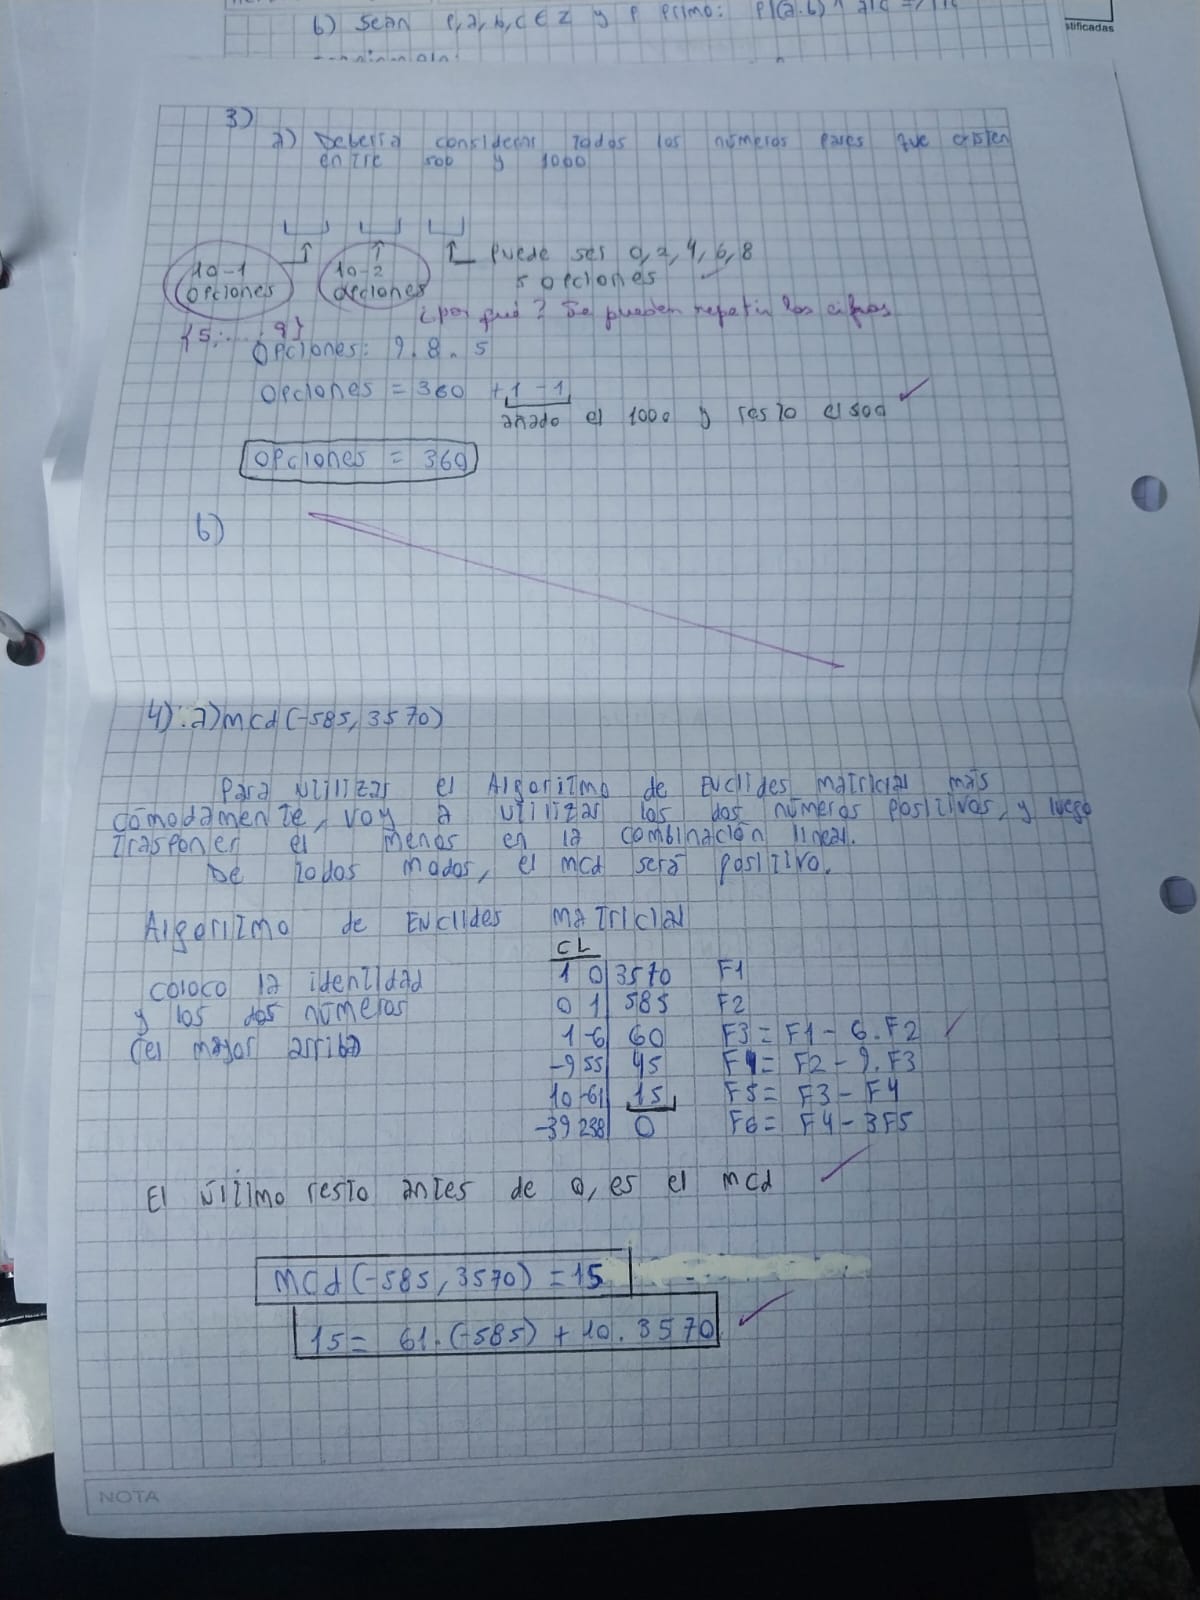 b) Sean p,a,b,c ∈ Z y p primo: p|(a.b) ^ a|c =>
stificadas
3)
a) Deberia considerar todos los números pares que existen
entre 500 y 1000
10-1
opciones
10-2
opciones
puede ser 0,2,4,6,8
5 opciones
¿por qué? Se pueden repetir las cifras
{5,.....9}
Opciones: 9.8.5
Opciones = 360 +1 -1
añado el 1000 y resto el 500
opciones = 360
b)
4) a) mcd(-585, 3570)
Para utilizar el Algoritmo de Euclides matricial más
cómodamente, voy a utilizar los dos números positivos, y luego
trasponer el menos en la combinación lineal.
De todos modos, el mcd será positivo.
Algoritmo de Euclides matricial
CL
coloco la identidad
y los dos números
(el mayor arriba
1 0 | 3570 F1
0 1 | 585 F2
1 -6 | 60 F3 = F1 - 6.F2
-9 55 | 45 F4 = F2 - 9.F3
10 -61 | 15 F5 = F3 - F4
-39 238 | 0 F6 = F4 - 3F5
El último resto antes de 0, es el mcd
mcd(-585, 3570) = 15
15 = 61.(-585) + 10.3570
NOTA